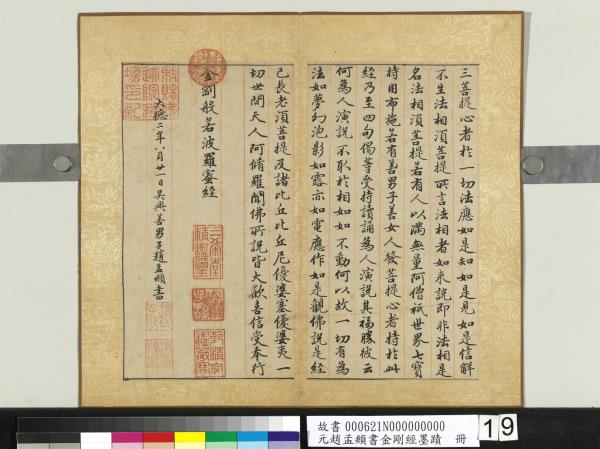 三菩提心者於一切法應如是知如是見如是信解
不生法相須菩提所言法相者如來說即非法相是
名法相須菩提若有人以滿無量阿僧祇世界七寶
持用布施若有善男子善女人發菩提心者持於此
經乃至四句偈等受持讀誦為人演說其福勝彼云
何為人演說不取於相如如不動何以故一切有為
法如夢幻泡影如露亦如電應作如是觀佛說是經
已長老須菩提及諸比丘比丘尼優婆塞優婆夷一
切世間天人阿脩羅聞佛所說皆大歡喜信受奉行
金剛般若波羅蜜經
大德二年八月廿一日吳興善男子趙孟頫書
三希堂精鑑璽
宜子孫
乾清宮鑑藏寶
故書 000621N000000000
元趙孟頫書金剛經墨蹟 冊
19